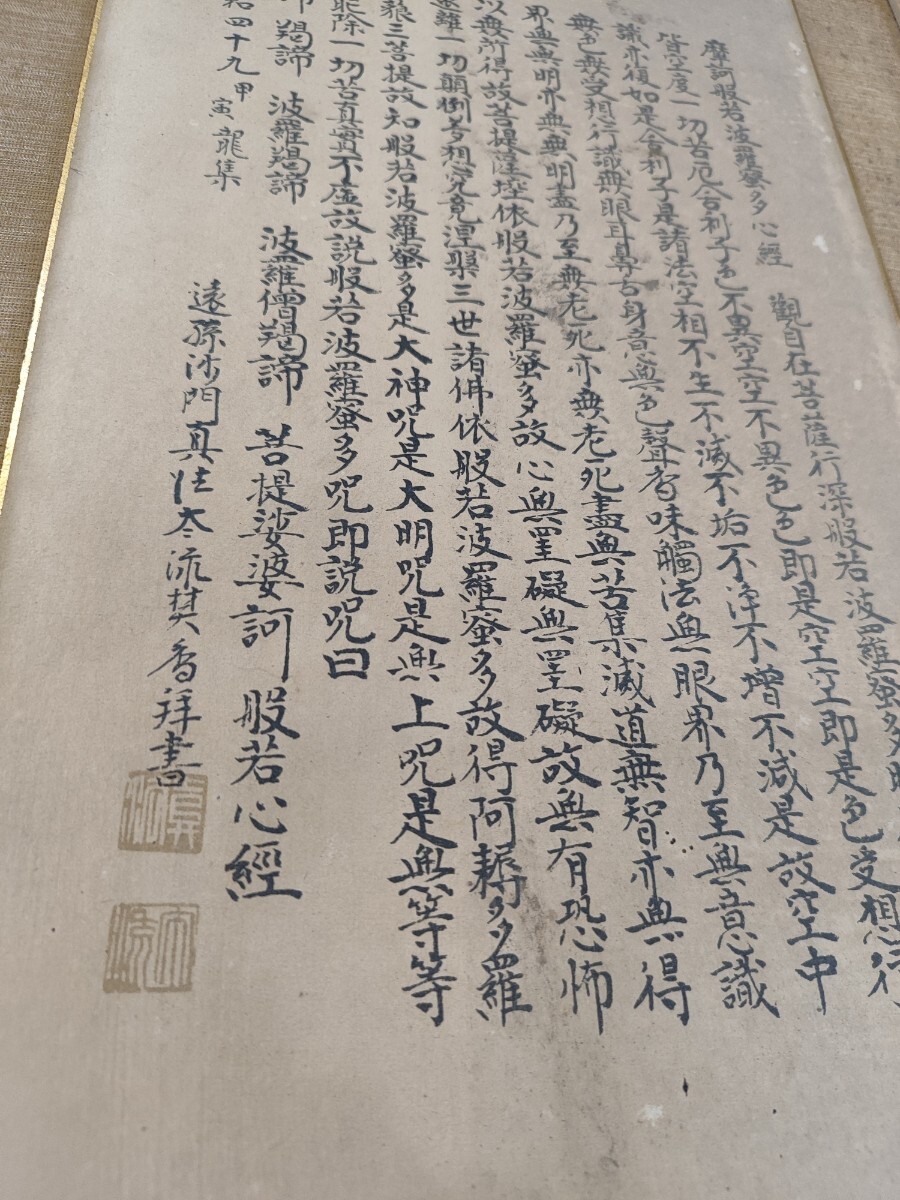 摩訶般若波羅蜜多心經
觀自在菩薩行深般若波羅蜜多時
皆空度一切苦厄舍利子色不異空空不異色色即是空空即是色受想行
識亦復如是舍利子是諸法空相不生不滅不垢不淨不增不減是故空中
無色無受想行識無眼耳鼻舌身意無色聲香味觸法無眼界乃至無意識
界無無明亦無無明盡乃至無老死亦無老死盡無苦集滅道無智亦無得
以無所得故菩提薩埵依般若波羅蜜多故心無罣礙無罣礙故無有恐怖
遠離一切顛倒夢想究竟涅槃三世諸佛依般若波羅蜜多故得阿耨多羅
藐三菩提故知般若波羅蜜多是大神咒是大明咒是無上咒是無等等
能除一切苦真實不虛故説般若波羅蜜多咒即説咒曰
羯諦 波羅羯諦 波羅僧羯諦 菩提娑婆訶 般若心經
四十九甲寅龍集
遠孫沙門真法 流焚香拜書